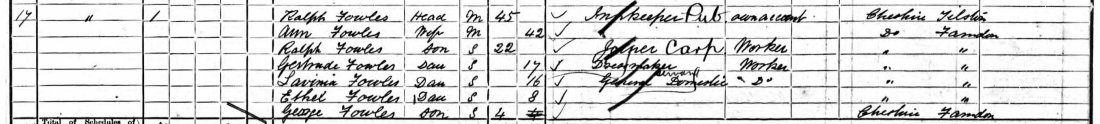 17 " 1 Ralph Fowles Head M 45 Innkeeper Pub own account Cheshire Tilston
Ann Fowles Wife M 42 Do Farndon
Ralph Fowles Son S 22 Joiner Carp Worker " "
Gertrude Fowles Dau S 17 Dressmaker Worker " "
Lavinia Fowles Dau S 16 General Servant Domestic " Do " " "
Ethel Fowles Dau S 8 " "
George Fowles Son S 4 Cheshire Farndon
Total of Schedules of